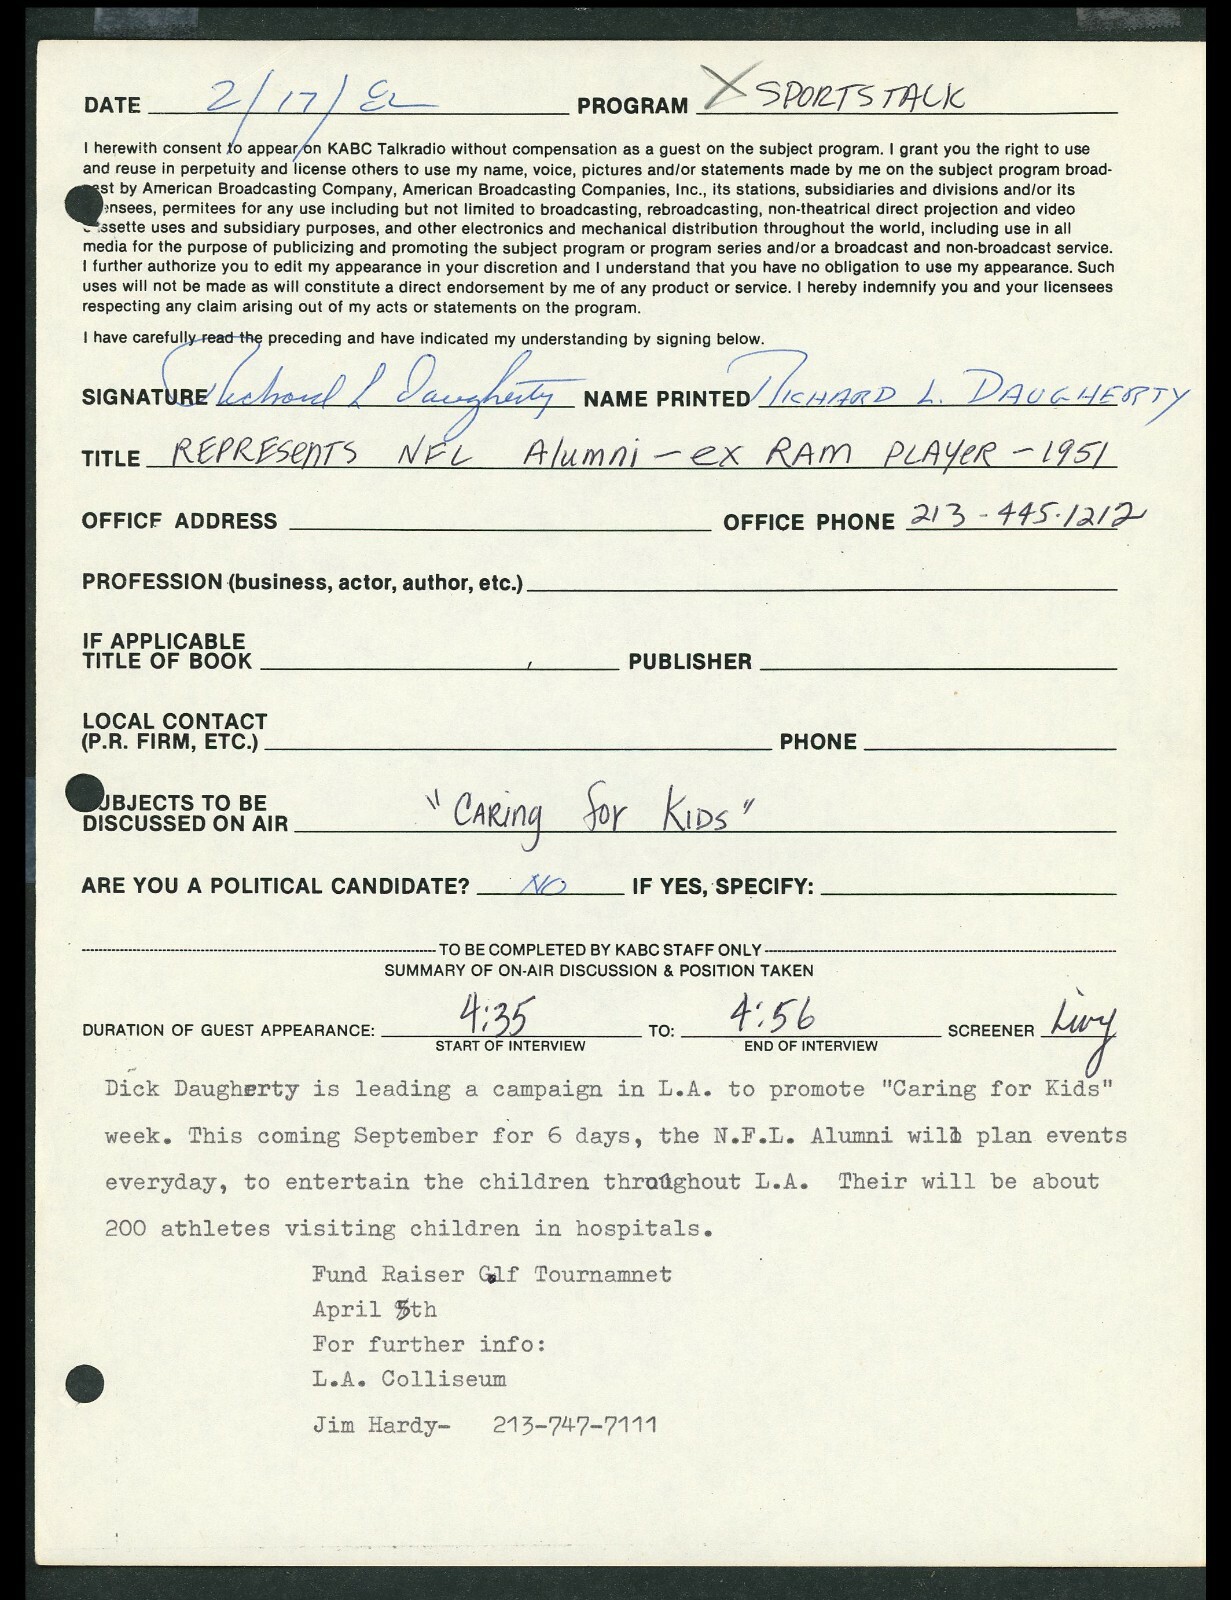 DATE 2/17/82 PROGRAM X SPORTSTALK
I herewith consent to appear on KABC Talkradio without compensation as a guest on the subject program. I grant you the right to use
and reuse in perpetuity and license others to use my name, voice, pictures and/or statements made by me on the subject program broad-
est by American Broadcasting Company, American Broadcasting Companies, Inc., its stations, subsidiaries and divisions and/or its
ensees, permitees for any use including but not limited to broadcasting, rebroadcasting, non-theatrical direct projection and video
ssette uses and subsidiary purposes, and other electronics and mechanical distribution throughout the world, including use in all
media for the purpose of publicizing and promoting the subject program or program series and/or a broadcast and non-broadcast service.
I further authorize you to edit my appearance in your discretion and I understand that you have no obligation to use my appearance. Such
uses will not be made as will constitute a direct endorsement by me of any product or service. I hereby indemnify you and your licensees
respecting any claim arising out of my acts or statements on the program.
I have carefully read the preceding and have indicated my understanding by signing below.
SIGNATURE Richard L Daugherty NAME PRINTED RICHARD L. DAUGHERTY
TITLE REPRESENTS NFL Alumni - ex RAM PLAYER - 1951
OFFICE ADDRESS OFFICE PHONE 213-445-1212
PROFESSION (business, actor, author, etc.)
IF APPLICABLE
TITLE OF BOOK PUBLISHER
LOCAL CONTACT
(P.R. FIRM, ETC.) PHONE
UBJECTS TO BE
DISCUSSED ON AIR "CARing for KIDS"
ARE YOU A POLITICAL CANDIDATE? NO IF YES, SPECIFY:
TO BE COMPLETED BY KABC STAFF ONLY
SUMMARY OF ON-AIR DISCUSSION & POSITION TAKEN
DURATION OF GUEST APPEARANCE: 4:35 TO: 4:56 SCREENER Livy
START OF INTERVIEW END OF INTERVIEW
Dick Daugherty is leading a campaign in L.A. to promote "Caring for Kids"
week. This coming September for 6 days, the N.F.L. Alumni will plan events
everyday, to entertain the children throughout L.A. Their will be about
200 athletes visiting children in hospitals.
Fund Raiser Golf Tournamnet
April 5th
For further info:
L.A. Colliseum
Jim Hardy- 213-747-7111